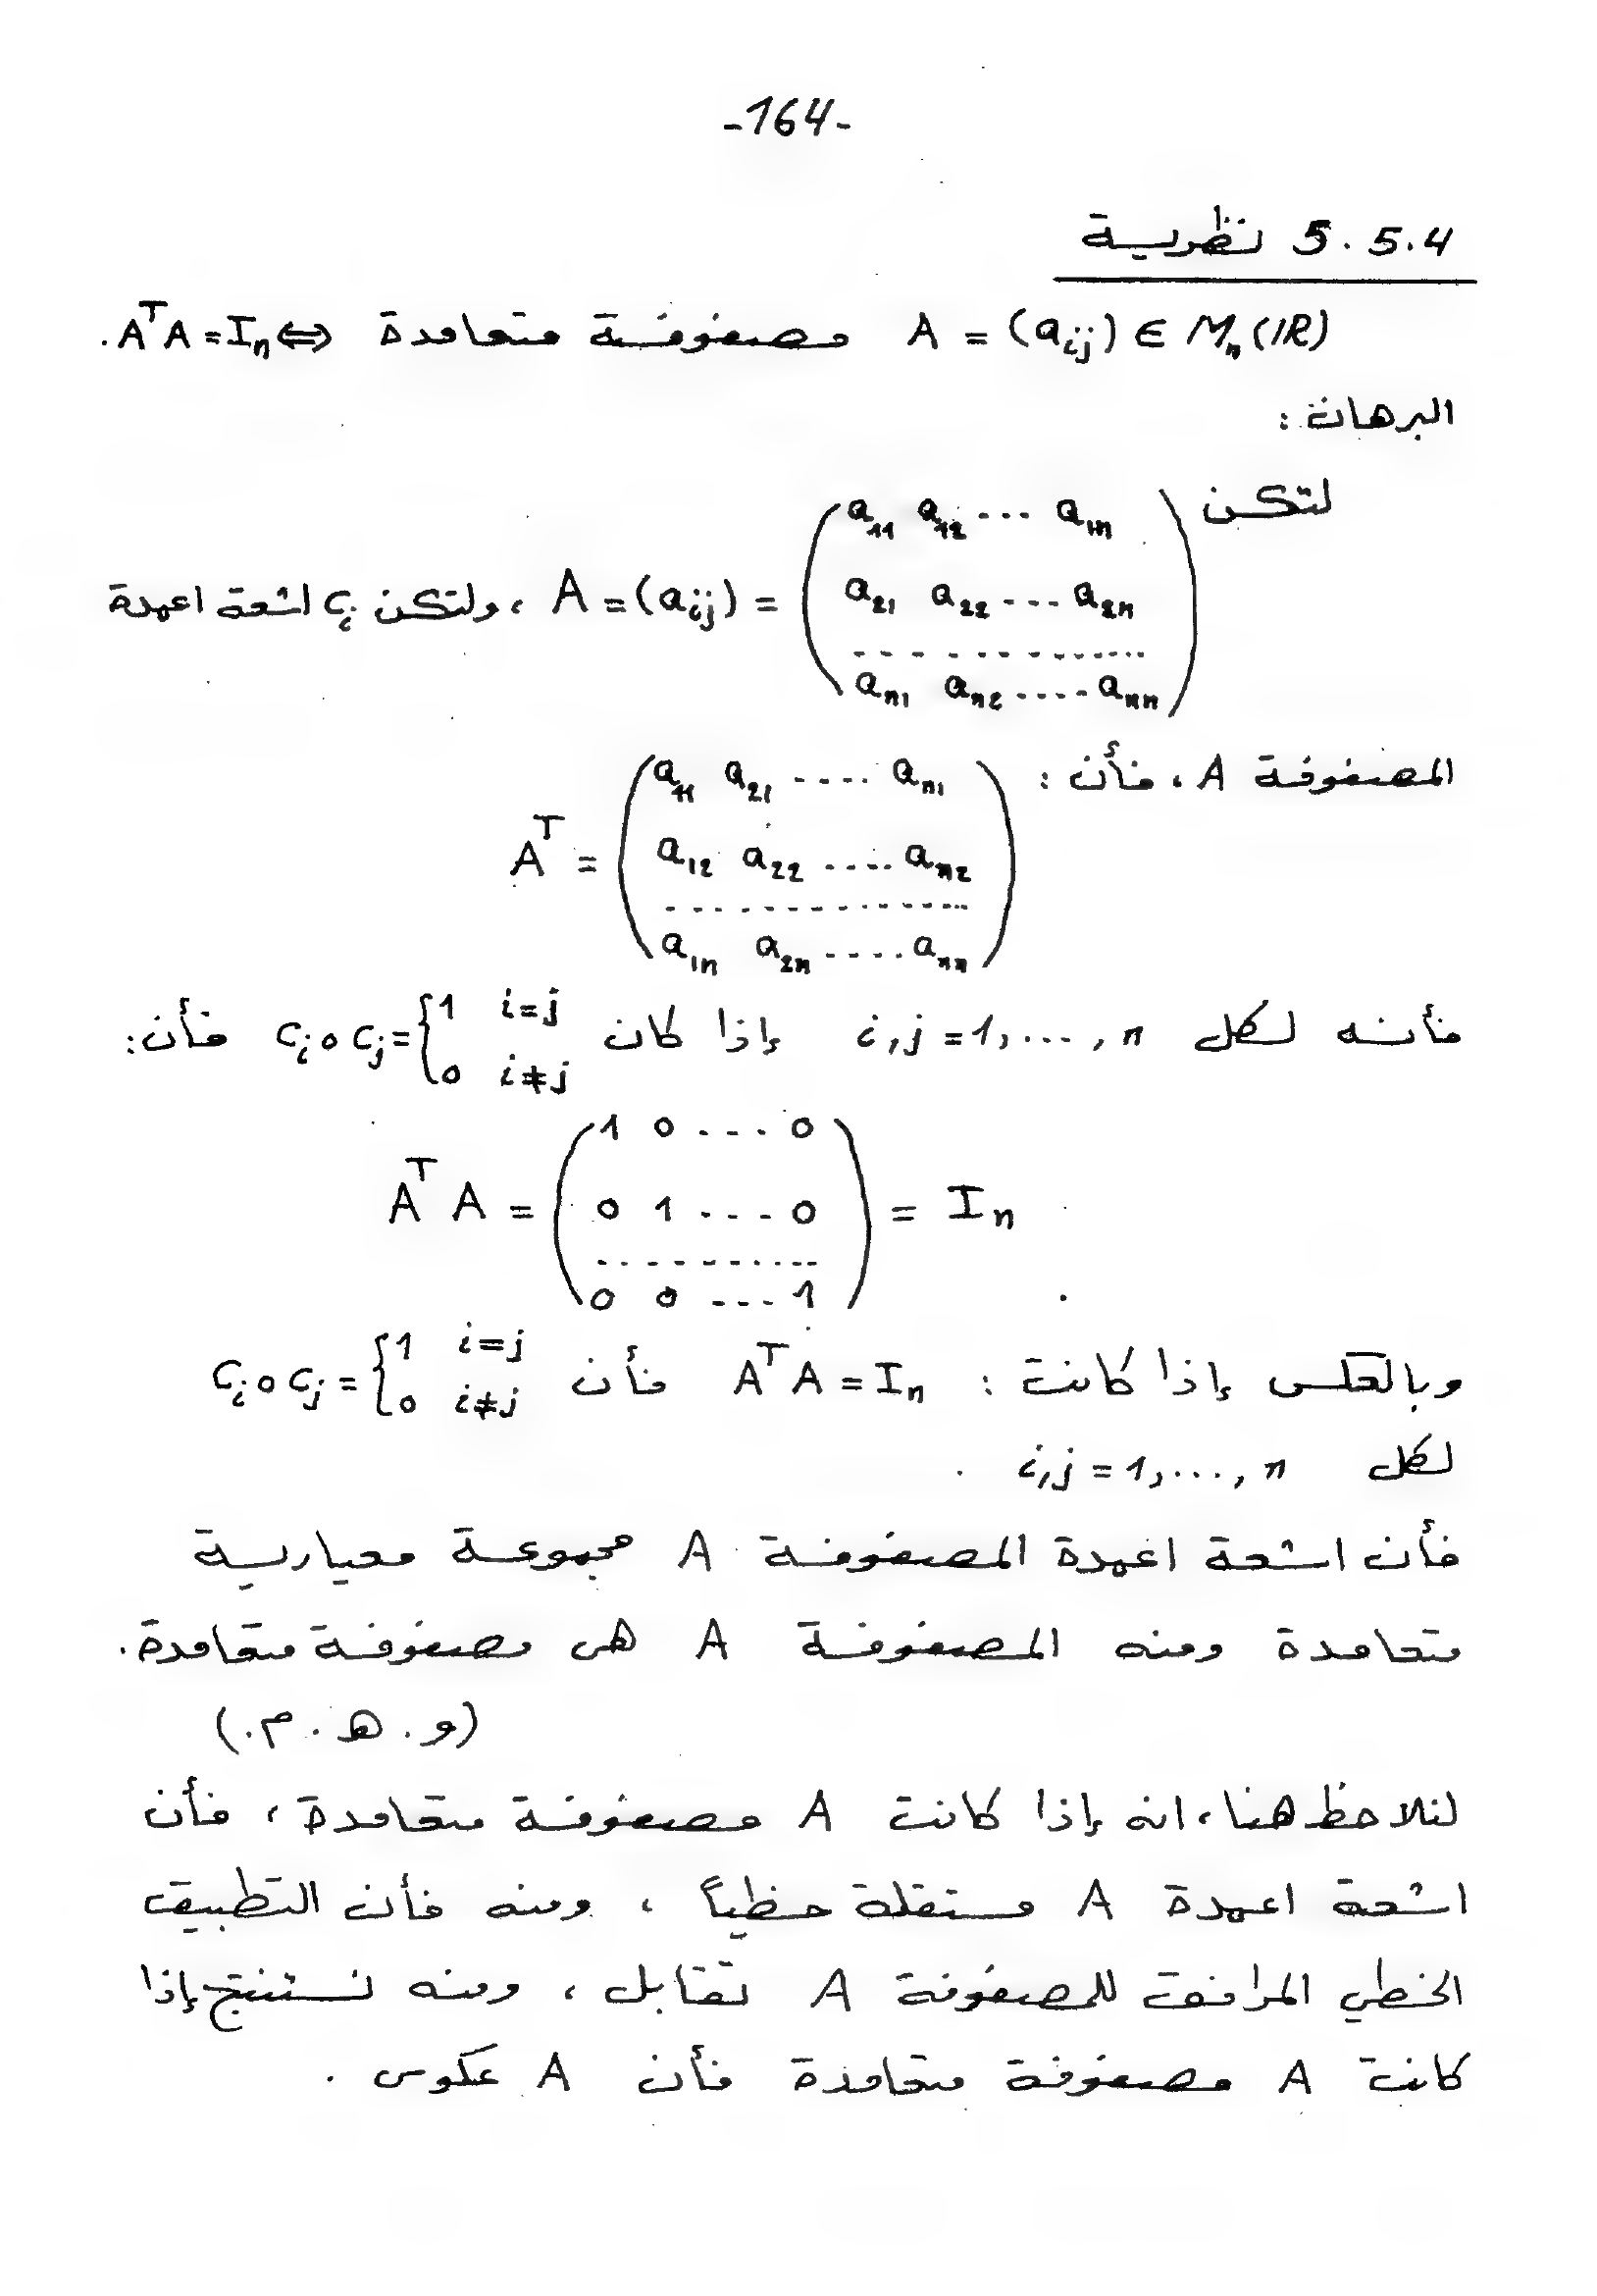 -164-
5.5.4 نظرية
A = (aᵢⱼ) ∈ Mₙ(ℝ) مصفوفة متعامدة ⇔ AᵀA = Iₙ .
البرهان :
لتكن
a₁₁ a₁₂ --- a₁ₙ
A = (aᵢⱼ) = a₂₁ a₂₂ --- a₂ₙ ، ولتكن Cᵢ اشعة اعمدة
aₙ₁ aₙ₂ ---- aₙₙ
المصفوفة A ، فأن :
a₁₁ a₂₁ ---- aₙ₁
Aᵀ = a₁₂ a₂₂ ---- aₙ₂
a₁ₙ a₂ₙ ---- aₙₙ
فأنه لكل i,j = 1, ..., n إذا كان Cᵢ o Cⱼ = { 1 i=j
0 i≠j فأن :
1 0 --- 0
AᵀA = 0 1 --- 0 = Iₙ
0 0 --- 1
وبالعكس إذا كانت : AᵀA = Iₙ فأن Cᵢ o Cⱼ = { 1 i=j
0 i≠j
لكل i,j = 1, ..., n .
فأن اشعة اعمدة المصفوفة A مجموعة معيارية
متعامدة ومنه المصفوفة A هي مصفوفة متعامدة .
(و . ه . م .)
لنلاحظ هنا ، انه إذا كانت A مصفوفة متعامدة ، فأن
اشعة اعمدة A مستقلة خطياً ، ومنه فأن التطبيق
الخطي المرافق للمصفوفة A تقابل ، ومنه نستنتج إذا
كانت A مصفوفة متعامدة فأن A عكوس .